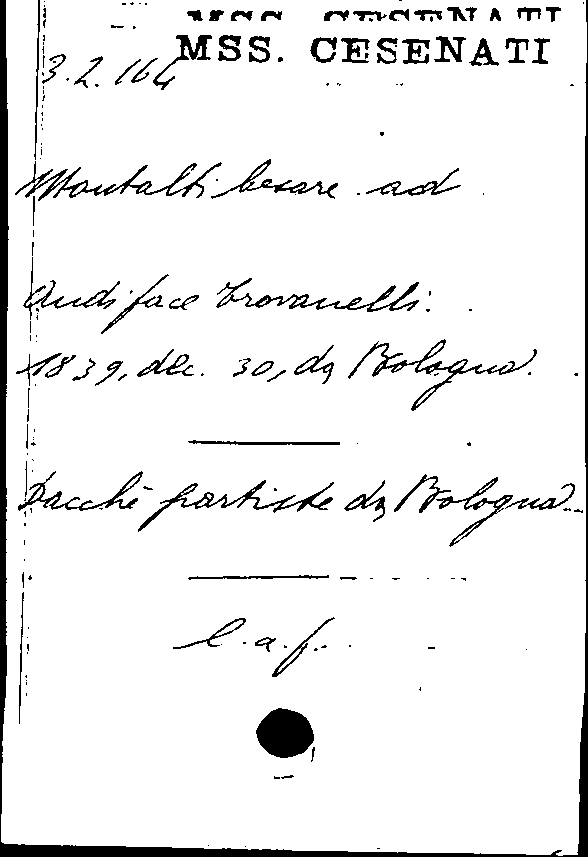 MSS. CESENATI
MSS. CESENATI
3.2.164
Montalti Cesare ad
Audiface Trovanelli.
1839, dec. 30, da Bologna.
Dacchè partiste da Bologna...
l.a.f.